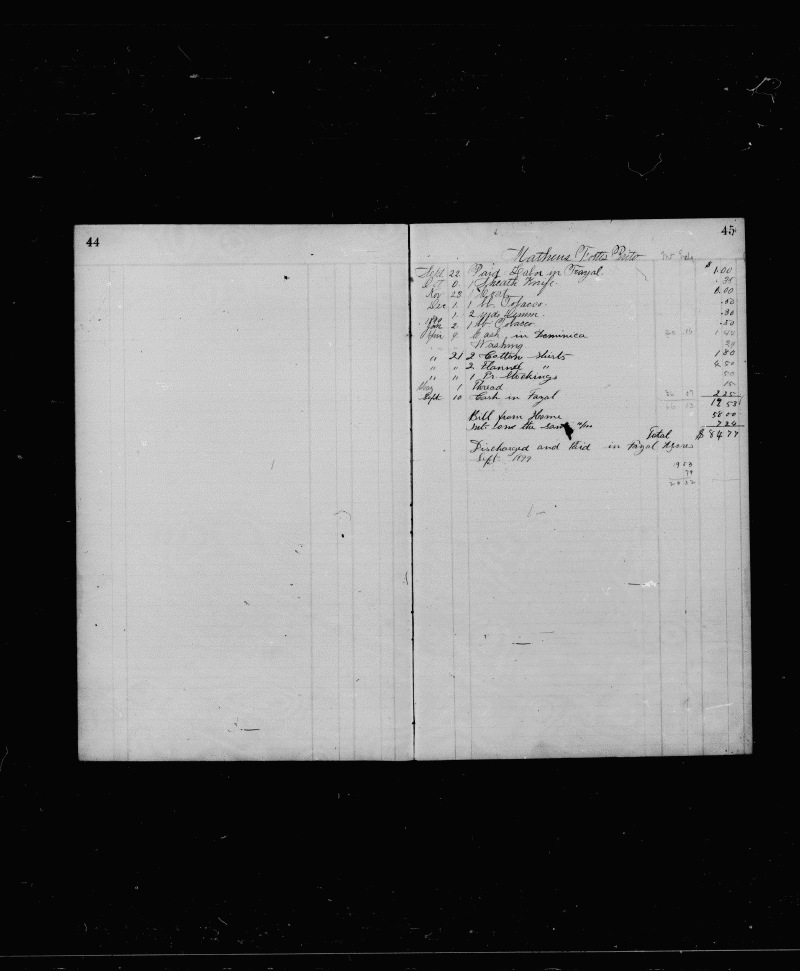 44
45
Matheus Fortes Brito
$
Sept 22 Paid Labor in Fayal 1.00
Oct 1 Sheath Knife .35
Nov 23 1 8.00
Dec 1 1 lb Tobacco .50
1 2 yds .30
Jan 2 1 lb Tobacco .50
9 Cash in Dominica 1 44
Washing
" 21 2 Cotton Shirts 1 80
" " 2 Flannel " 4 50
" " 1 Pr. Stockings 50
May 1 Thread 15
Sept 10 Cash in Fayal 2 25
19 53
Bill from Home 58 00
the same 7 24
Total $ 84 77
Discharged and Paid in Fayal Azores
Sept
19 53
79
20 32